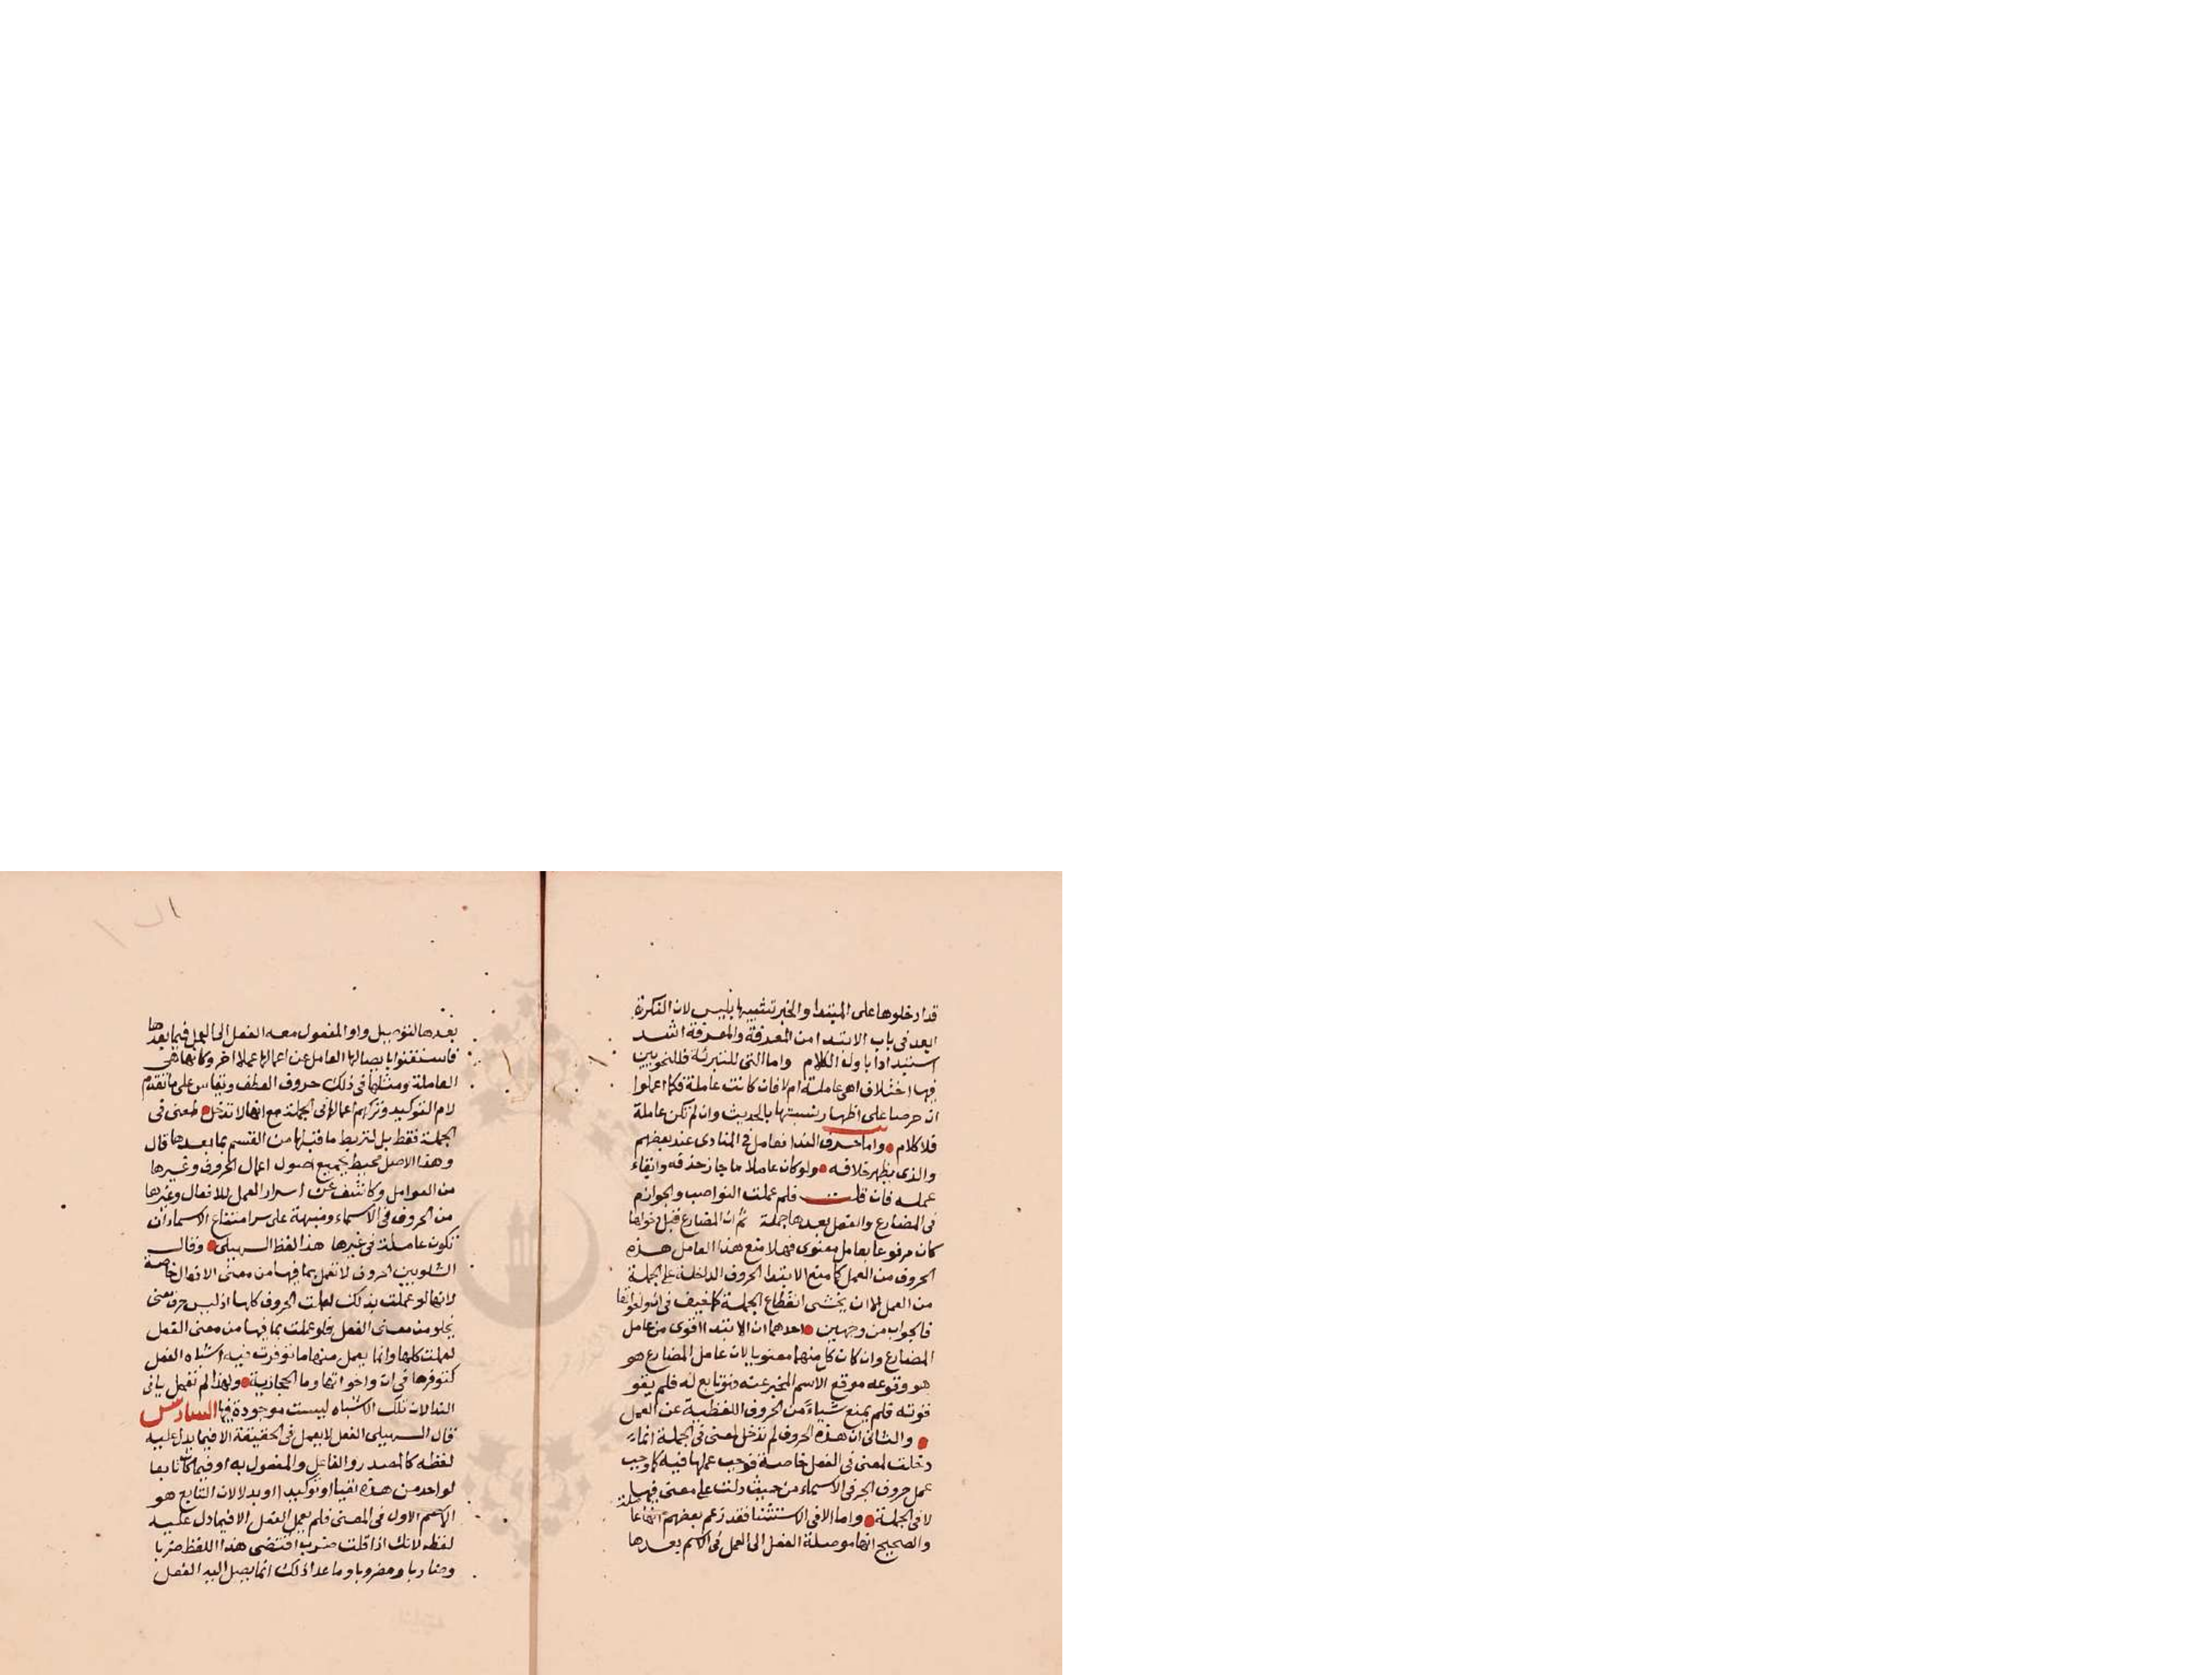 قد ادخلوها على المبتدا والخبر تشبيها بليس لان النكرة
ابعد في باب الابتدا من المعرفة والمعرفة اشد
استبدادا باول الكلام واما التي للتبرئة فللنحويين
فيها اختلاف اهي عاملة ام لا فان كانت عاملة فكما اعملوا
ان حرصا على اظهار تشبثها بالحديث وان لم تكن عاملة
فلا كلام واما حرف الندا فعامل في المنادى عند بعضهم
والذي يظهر خلافه ولو كان عاملا ما جاز حذفه وابقاء
عمله فان قلت فلم عملت النواصب والجوازم
في المضارع والفعل بعدها جملة ثم ان المضارع قبل دخولها
كان مرفوعا بعامل معنوي فهلا منع هذا العامل هذه
الحروف من العمل كما منع الابتدا الحروف الداخلة على الجملة
من العمل الا ان يخشى انقطاع الجملة كما خيف في ان واخواتها
فالجواب من وجهين احدهما ان الابتدا اقوى من عامل
المضارع وان كان كل منهما معنويا لان عامل المضارع هو
هو وقوعه موقع الاسم المخبر عنه فهو تابع له فلم يقو
قوته فلم يمنع شياء من الحروف اللفظية عن العمل
والثاني ان هذه الحروف لم تدخل لمعنى في الجملة انما
دخلت لمعنى في الفعل خاصة فوجب عملها فيه كما وجب
عمل حروف الجر في الاسماء من حيث دلت على معنى فيها
لا في الجملة واما الا في الاستثنا فقد زعم بعضهم انها عاملة
والصحيح انها موصلة الفعل الى العمل في الاسم بعدها
بعدها لتوصيل واو المفعول معه الفعل الى العمل فيما بعدها
فاستغنوا بايصالها العامل عن اعمالها عملا اخر وكانها هي
العاملة ومثلها في ذلك حروف العطف ويقاس على ما تقدم
لام التوكيد وتركهم اعمالها في الجملة مع انها لا تدخل لمعنى في
الجملة فقط بل لتربط ما قبلها من القسم بما بعدها قال
وهذا الاصل محيط بجميع اصول اعمال الحروف وغيرها
من العوامل وكاشف عن اسرار العمل للافعال وغيرها
من الحروف في الاسماء ومنبهة على سر امتناع الاسماء ان
تكون عاملة في غيرها هذا لفظ السهيلي وقال
الشلوبين الحروف لا تعمل بما فيها من معنى الافعال خاصة
لانها لو عملت بذلك لعملت الحروف كلها اذ ليس حرف معنى
يخلو من معنى الفعل فلو عملت بما فيها من معنى الفعل
لعملت كلها وانما يعمل منها ما توفرت فيه اشباه الفعل
كتوفرها في ان واخواتها وما الحجازية ولهذا لم تعمل يا في
الندا لان تلك الاشباه ليست موجودة فيها السادس
قال السهيلي الفعل لا يعمل في الحقيقة الا فيما يدل عليه
لفظه كالمصدر والفاعل والمفعول به او فيما كان تابعا
لواحد من هذه نعتا او توكيدا او بدلا لان التابع هو
الاسم الاول في المعنى فلم يعمل الفعل الا فيما دل عليه
لفظه لانك اذا قلت ضرب اقتضى هذا اللفظ ضربا
وضاربا ومضروبا وما عدا ذلك انما يصل اليه الفعل